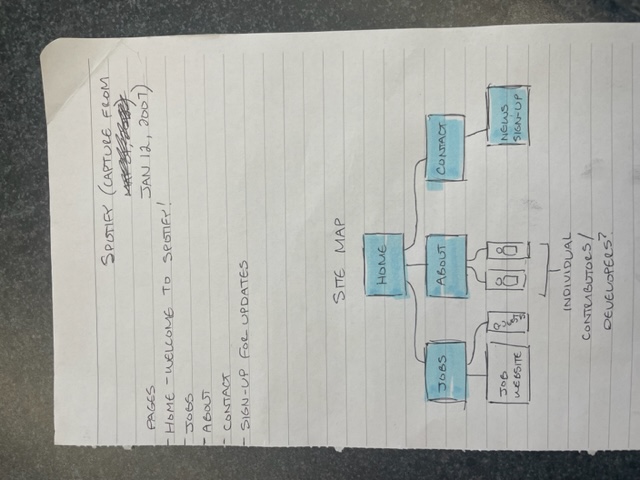 SPOTIFY (CAPTURE FROM
JAN 12, 2007)
PAGES
- HOME - WELCOME TO SPOTIFY!
- JOBS
- ABOUT
- CONTACT
- SIGN-UP FOR UPDATES
SITE MAP
HOME
JOBS
ABOUT
CONTACT
JOB
WEBSITE
NEWS
SIGN-UP
INDIVIDUAL
CONTRIBUTORS/
DEVELOPERS?